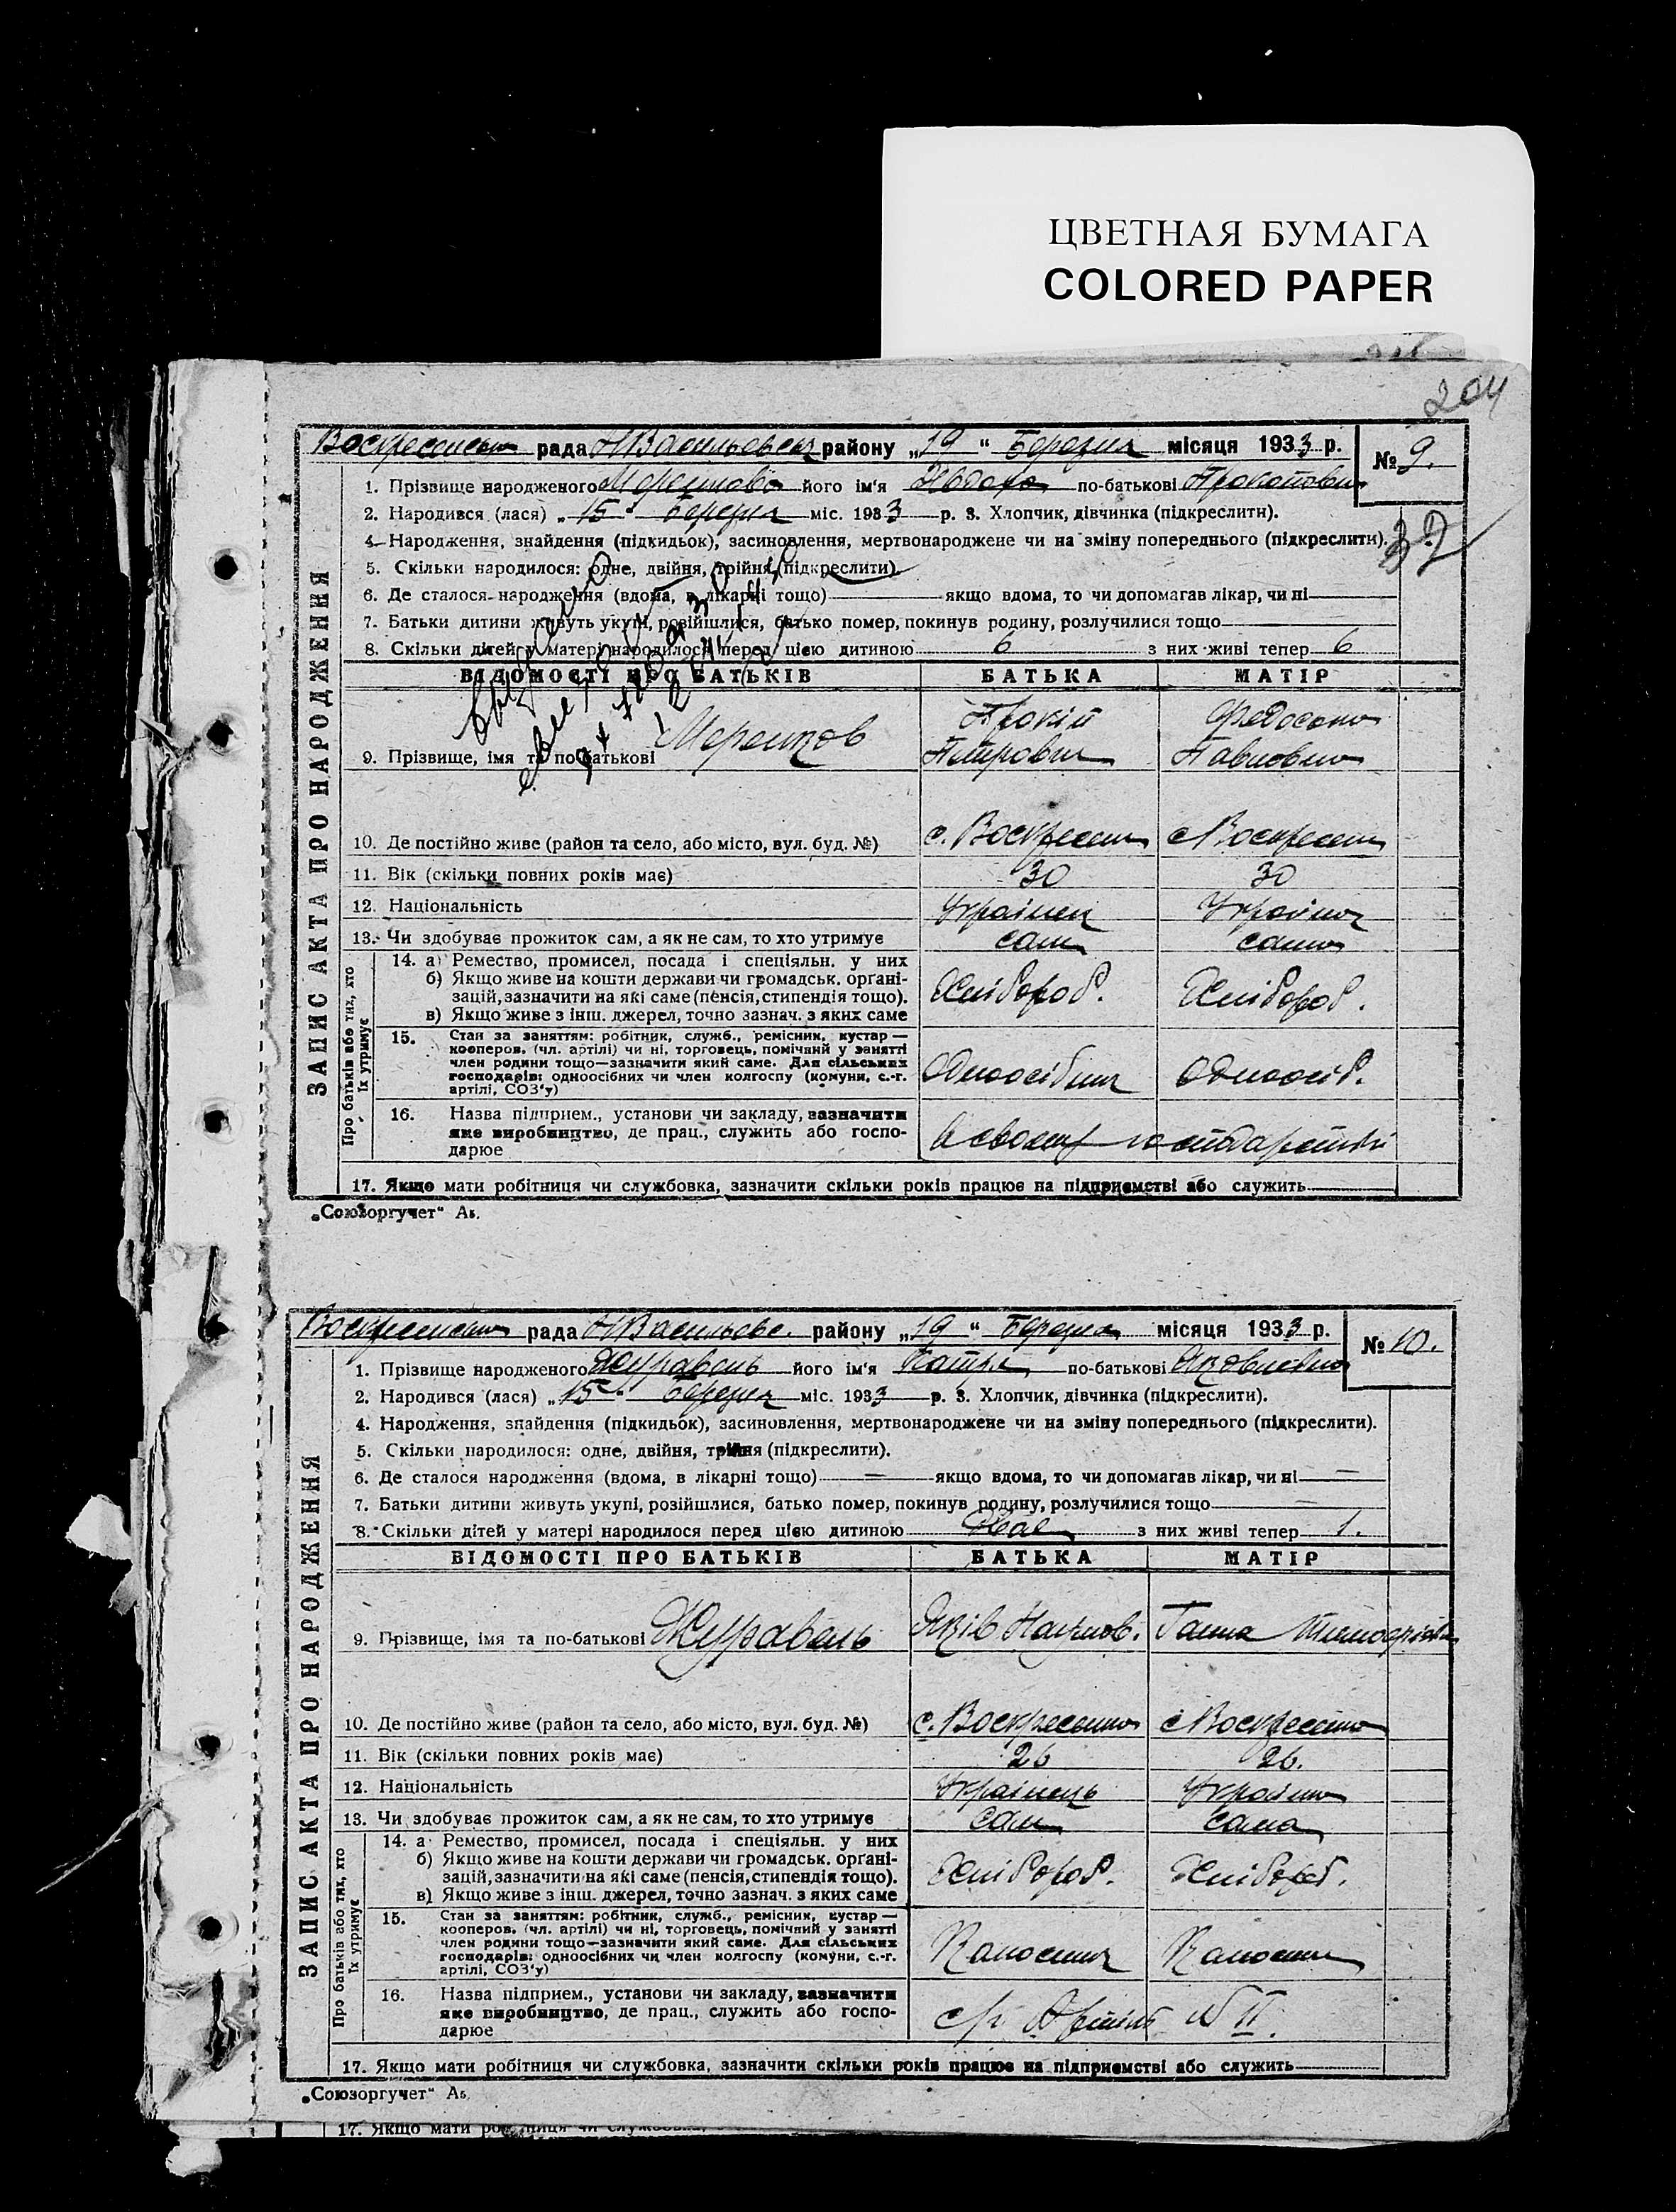 ЦВЕТНАЯ БУМАГА
COLORED PAPER
204
рада Н Васильевськ району „19 “ Березня місяця 1933 р. № 9.
1. Прізвище народженого його ім'я по-батькові
2. Народився (лася) „ 15 “ Березня міс. 1933 р. 3. Хлопчик, дівчинка (підкреслити).
4. Народження, знайдення (підкидьок), засиновлення, мертвонароджене чи на зміну попереднього (підкреслити).
37
5. Скільки народилося: одне, двійня, трійня (підкреслити).
6. Де сталося народження (вдома, в лікарні тощо) якщо вдома, то чи допомагав лікар, чи ні
7. Батьки дитини живуть укупі, розійшлися, батько помер, покинув родину, розлучилися тощо
8. Скільки дітей у матері народилося перед цією дитиною 6 з них живі тепер 6
ВІДОМОСТІ ПРО БАТЬКІВ БАТЬКА МАТІР
9. Прізвище, імя та по-батькові
10. Де постійно живе (район та село, або місто, вул. буд. №)
11. Вік (скільки повних років має) 30 30
12. Національність Украінец Украінка
13. Чи здобуває прожиток сам, а як не сам, то хто утримує сам сама
ЗАПИС АКТА ПРО НАРОДЖЕННЯ
Про батьків або тих, хто їх утримує
14. а) Ремество, промисел, посада і спеціяльн. у них
б) Якщо живе на кошти держави чи громадськ. органі-
зацій, зазначити на які саме (пенсія, стипендія тощо). Хлібороб. Хлібороб.
в) Якщо живе з інш. джерел, точно зазнач. з яких саме
15. Стан за заняттям: робітник, служб., ремісник, кустар —
кооперов. (чл. артілі) чи ні, торговець, помічний у занятті
член родини тощо—зазначити який саме. Для сільських
господарів: одноосібних чи член колгоспу (комуни, с.-г. одноосіб.
артілі, СОЗ'у)
16. Назва підприєм., установи чи закладу, зазначити
яке виробництво, де прац., служить або госпо-
дарює
17. Якщо мати робітниця чи службовка, зазначити скільки років працює на підприємстві або служить
„Союзоргучет“ А5.
рада Н Васильевс. району „19 “ Березня місяця 1933 р. № 10.
1. Прізвище народженого Журавель його ім'я по-батькові
2. Народився (лася) „ 15 “ Березня міс. 1933 р. 3. Хлопчик, дівчинка (підкреслити).
4. Народження, знайдення (підкидьок), засиновлення, мертвонароджене чи на зміну попереднього (підкреслити).
5. Скільки народилося: одне, двійня, трійня (підкреслити).
6. Де сталося народження (вдома, в лікарні тощо) — якщо вдома, то чи допомагав лікар, чи ні —
7. Батьки дитини живуть укупі, розійшлися, батько помер, покинув родину, розлучилися тощо —
8. Скільки дітей у матері народилося перед цією дитиною з них живі тепер 1.
ВІДОМОСТІ ПРО БАТЬКІВ БАТЬКА МАТІР
9. Прізвище, імя та по-батькові Журавель Яків Наумов. Ганна
10. Де постійно живе (район та село, або місто, вул. буд. №)
11. Вік (скільки повних років має) 26 26.
12. Національність Украінець Украінка
13. Чи здобуває прожиток сам, а як не сам, то хто утримує сам сама
ЗАПИС АКТА ПРО НАРОДЖЕННЯ
Про батьків або тих, хто їх утримує
14. а Ремество, промисел, посада і спеціяльн. у них
б) Якщо живе на кошти держави чи громадськ. органі-
зацій, зазначити на які саме (пенсія, стипендія тощо). Хлібороб. Хлібороб.
в) Якщо живе з інш. джерел, точно зазнач. з яких саме
15. Стан за заняттям: робітник, служб., ремісник, кустар —
кооперов. (чл. артілі) чи ні, торговець, помічний у занятті
член родини тощо—зазначити який саме. Для сільських
господарів: одноосібних чи член колгоспу (комуни, с.-г.
артілі, СОЗ'у)
16. Назва підприєм., установи чи закладу, зазначити
яке виробництво, де прац., служить або госпо-
дарює
17. Якщо мати робітниця чи службовка, зазначити скільки років працює на підприємстві або служить
„Союзоргучет“ А5.
17. Якщо мати